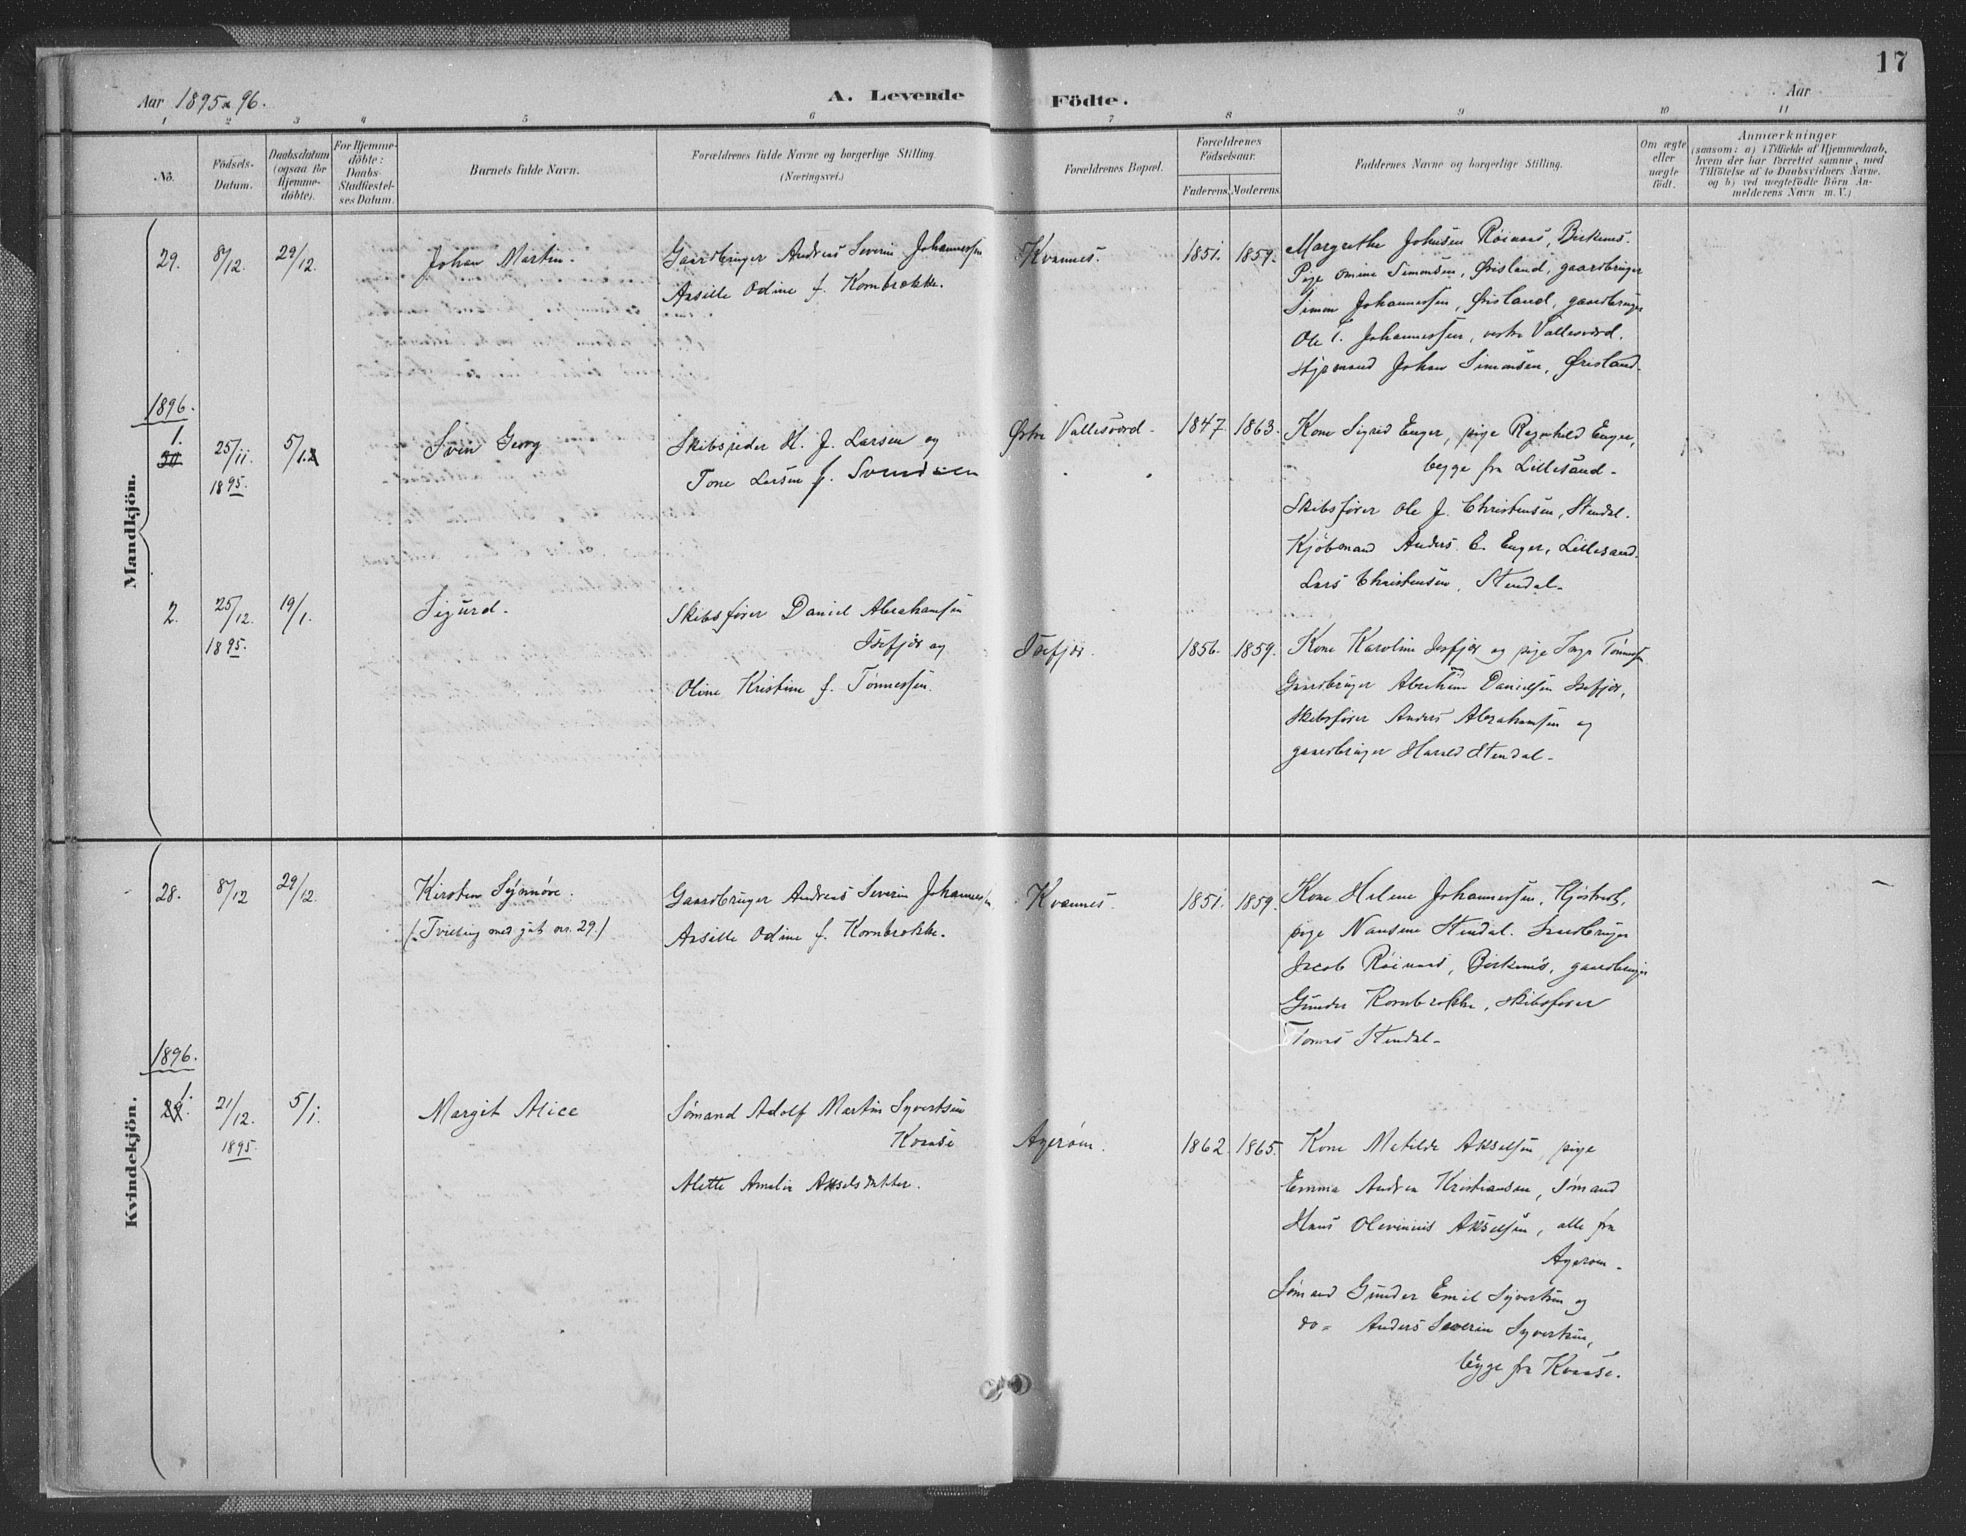 17
Aar 1895 & 96.
A. Levende Födte.
Aar
1 2 3 4 5 6 7 8 9 10 11
No.
Födsels-Datum.
Daabsdatum (ogsaa for Hjemme-döbte).
For Hjemme-döbte: Daabs-Stadfæstel-ses Datum.
Barnets fulde Navn.
Forældrenes fulde Navne og borgerlige Stilling (Næringsvei.)
Forældrenes Bopæl.
Forældrenes Födselsaar.
Faderens. Moderens.
Faddernes Navne og borgerlige Stilling.
Om ægte eller uægte födt.
Anmærkninger
(saasom: a) i Tilfælde af Hjemmedaab,
hvem der har forrettet samme, med
Tilföielse af to Daabsvidners Navne,
og b) ved uægtefödte Börn An-
melderens Navn m. V.)
Mandkjön.
29. 8/12. 29/12. Johan Martin. Gaardbruger Andreas Severin Johannessen Kvannes. 1851. 1859.
Assille Odine f. Kornbrekke.
Margrethe Johnsen Röinaas, Birkenes.
Pige Omine Simonsen, Øvisland, gaardbruger
Simon Johannessen, Øvisland, gaardbruger
Ole T. Johannessen, vestre Vallesværd.
Styrmand Johan Simonsen, Øvisland.
1896.
1.
30 25/11. 1895. 5/1. Sven Georg Skibsreder H. J. Larsen og Østre Vallesværd. 1847. 1863.
Tone Larsen f. Svendsen
Kone Sigrid Enger, pige Ragnhild Enger,
begge fra Lillesand.
Skibsfører Ole J. Christensen, Stendal.
Kjöbmand Anders E. Enger, Lillesand.
Lars Christensen, Stendal.
2. 25/12. 1895. 19/1. Sigurd. Skibsfører Daniel Abrahamsen
Isefjær og Isefjær. 1856. 1859.
Oline Kristine f. Tønnessen.
Kone Karoline Isefjær og pige Inga Tønnessen
Gaardbruger Abraham Danielsen Isefjær,
Skibsfører Anders Abrahamsen og
gaardbruger Harald Stendal.
Kvindekjön.
28. 8/12 29/12. Kirsten Synnøve. Gaardbruger Andreas Severin Johannessen Kvannes. 1851. 1859.
(Tvilling med gut nr. 29.) Assille Odine f. Kornbrekke.
Kone Helene Johannessen, Kjøstvedt,
pige Nansene Stendal. Gaardbruger
Jacob Röinaas, Birkenes, gaardbruger
Gunder Kornbrekke, Skibsfører
Tomas Stendal.
1896.
1.
29. 21/12. 1895. 5/1. Margit Alice Sømand Adolf Martin Syvertsen
Kvaase Agerøen. 1862. 1865.
Mette Amalie Akselsdatter.
Kone Matilde Akselsen, pige
Emma Andrea Kristiansen, Sømand
Hans Olevinius Akselsen, alle fra
Agerøen.
Sømand Gunder Emil Syvertsen og
do Anders Severin Syvertsen,
begge fra Kvaase.